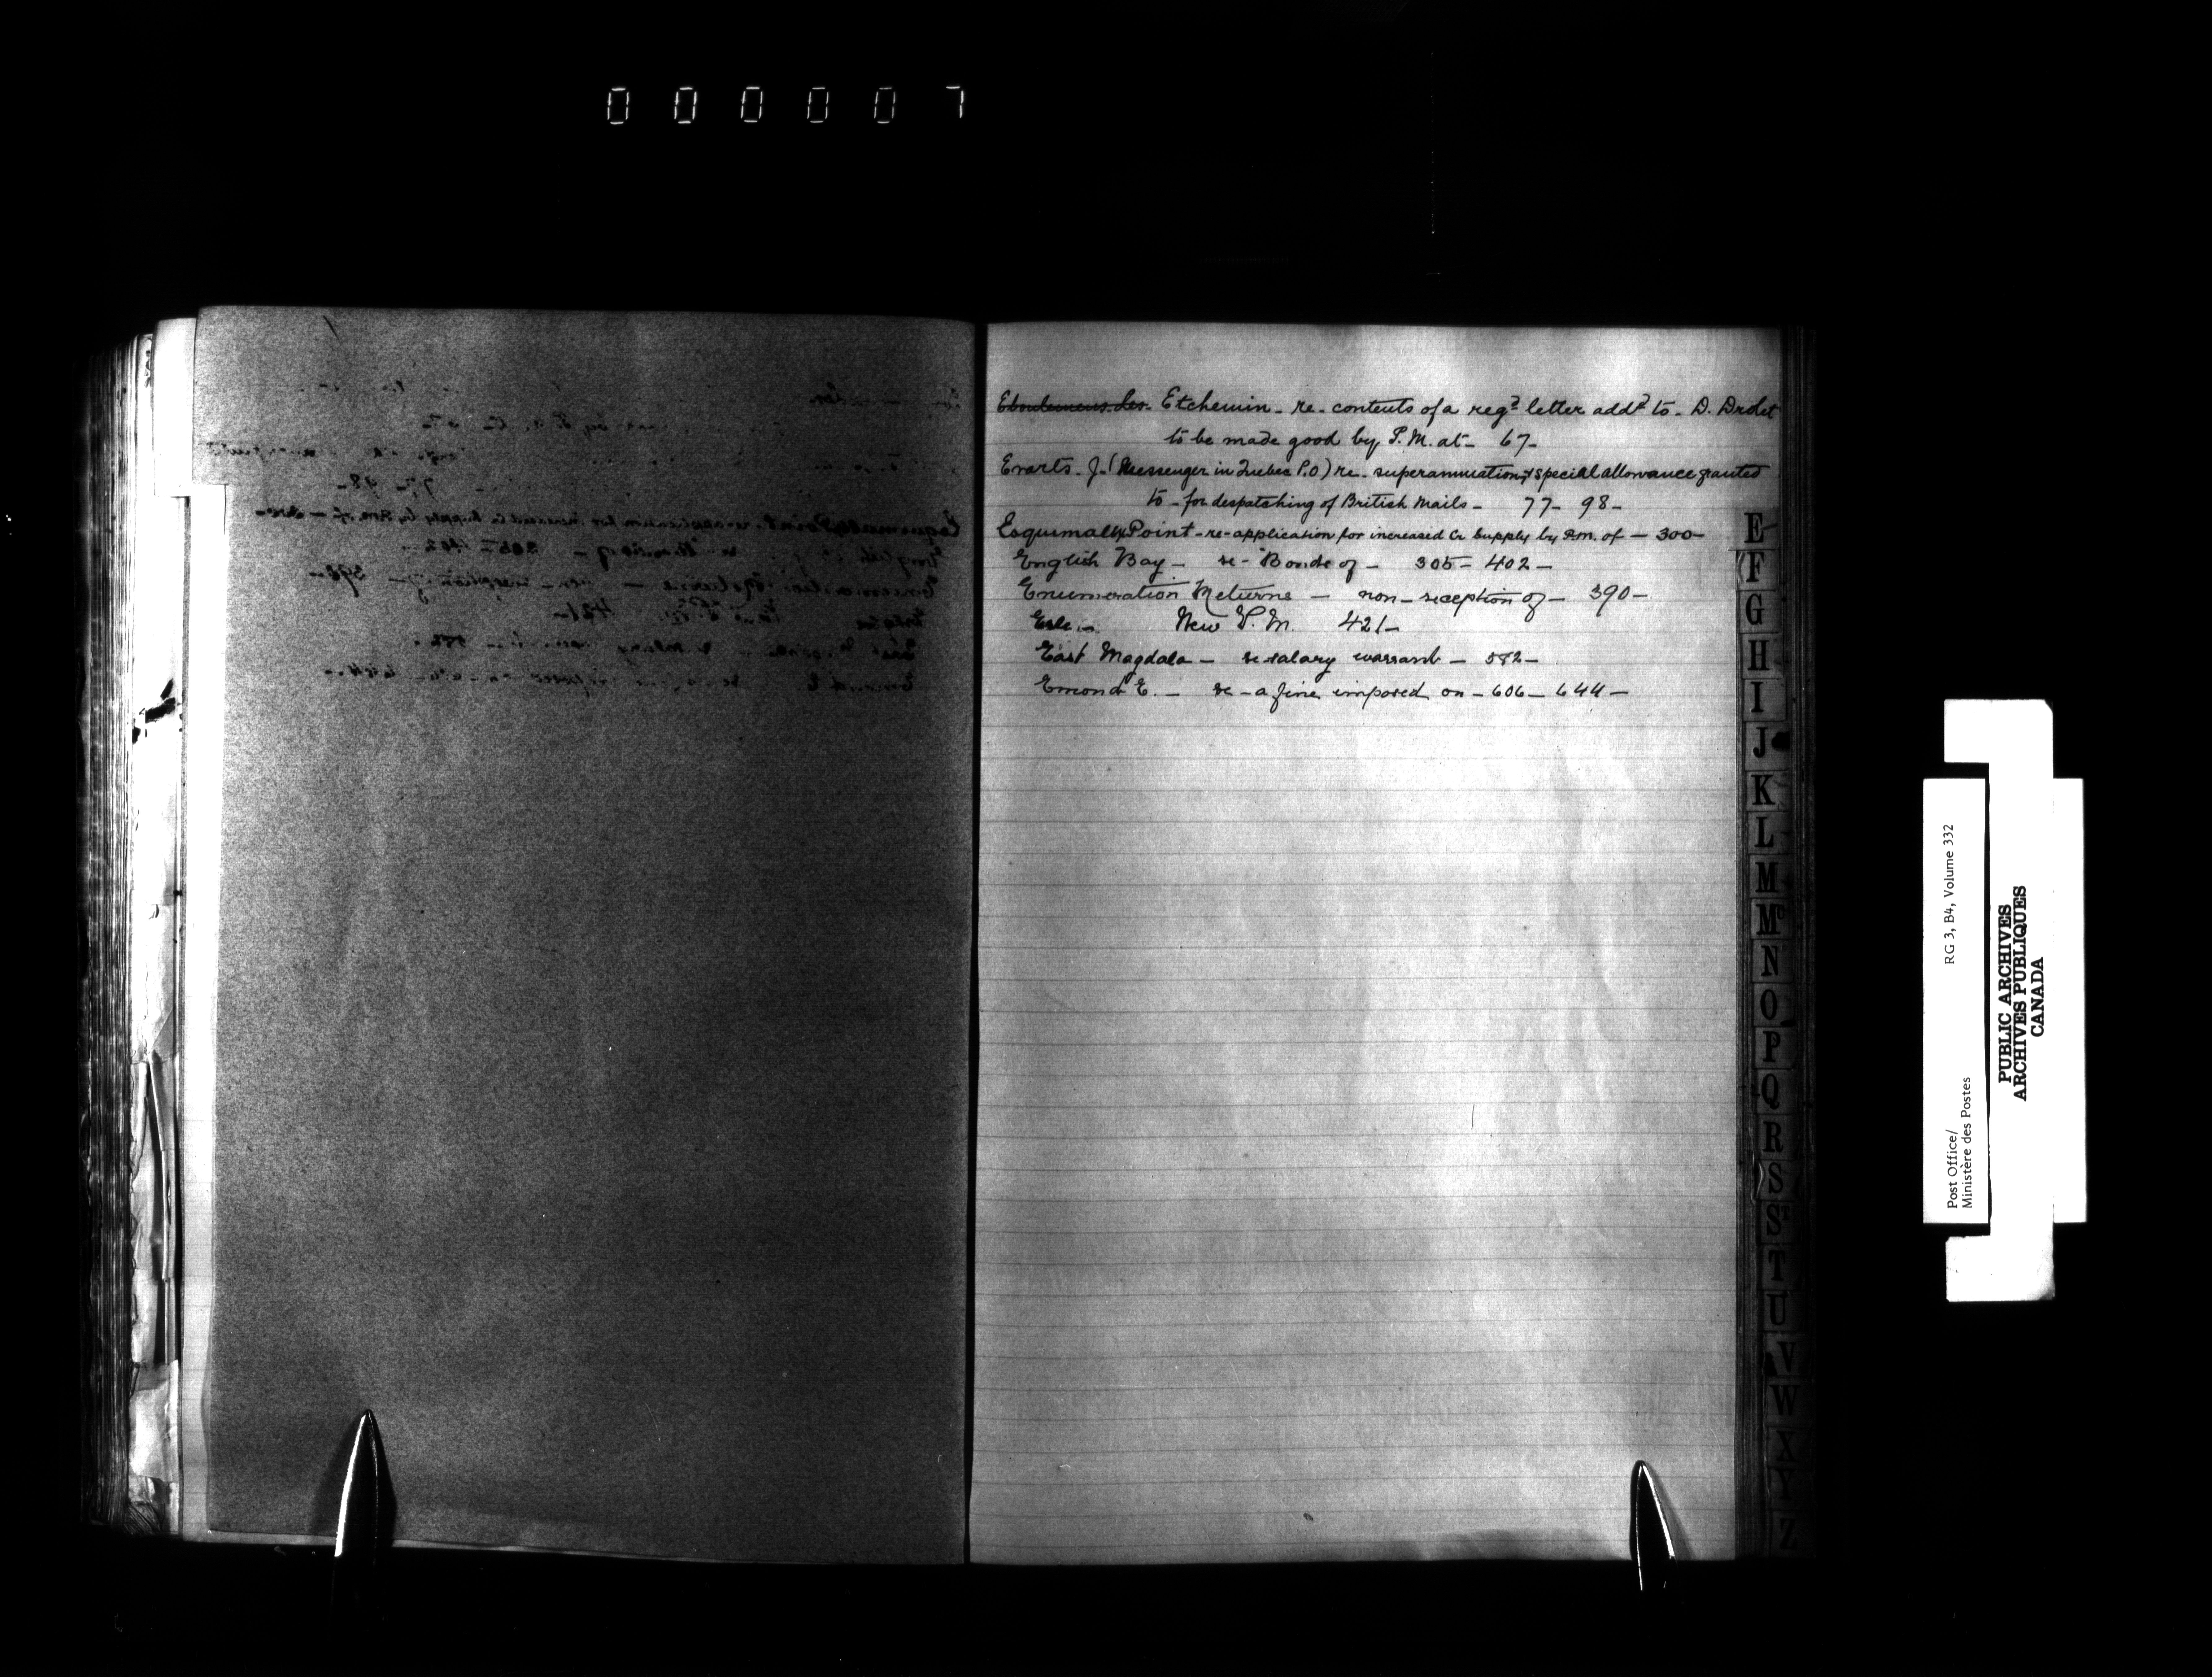 000007
Eboulemens les Etchemin - re - contents of a reg^d letter add^d to - D. Drolet
to be made good by P.M. at - 67 -
Evarts - J - (Messenger in Quebec P.O) re - superannuation, & special allowance granted
to - for despatching of British Mails - 77 - 98 -
Esquimaux Point - re - application for increased Cr supply by P.M. of - 300 -
English Bay - re - Bonds of - 305 - 402 -
Enumeration Returns - non - reception of - 390 -
New P.M. 421 -
East Magdala - re salary warrant - 582 -
Emond E. - re - a fine imposed on - 606 - 644 -
E
F
G
H
I
J
K
L
M
Mc
N
O
P
Q
R
S
St
T
U
V
W
X
Y
Z
RG 3, B4, Volume 332
Post Office/
Ministère des Postes
PUBLIC ARCHIVES
ARCHIVES PUBLIQUES
CANADA